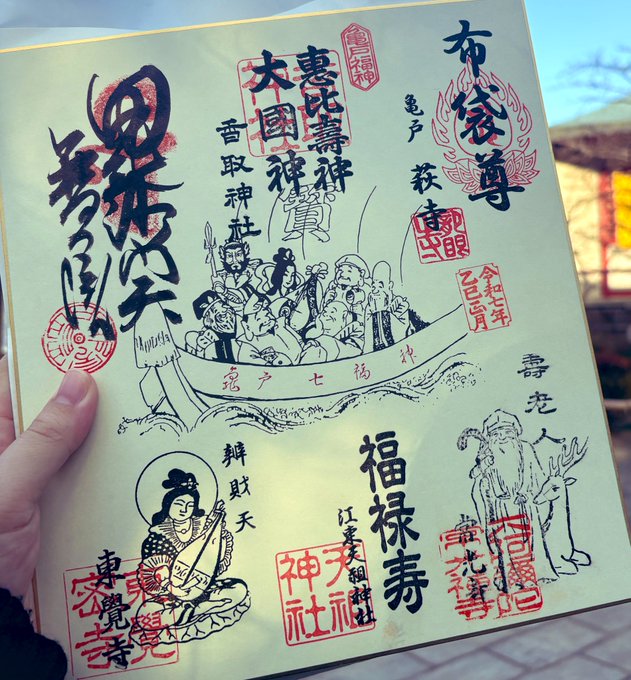 布袋尊
亀戸 萩寺
令和七年
乙巳正月
亀戸福神
惠比壽神
大國神
香取神社
毘沙門天
普門院
寶
龜戸七福神
壽老人
常光寺
福禄寿
江東天祖神社
天祖神社
辨財天
東覺寺
東覺密寺